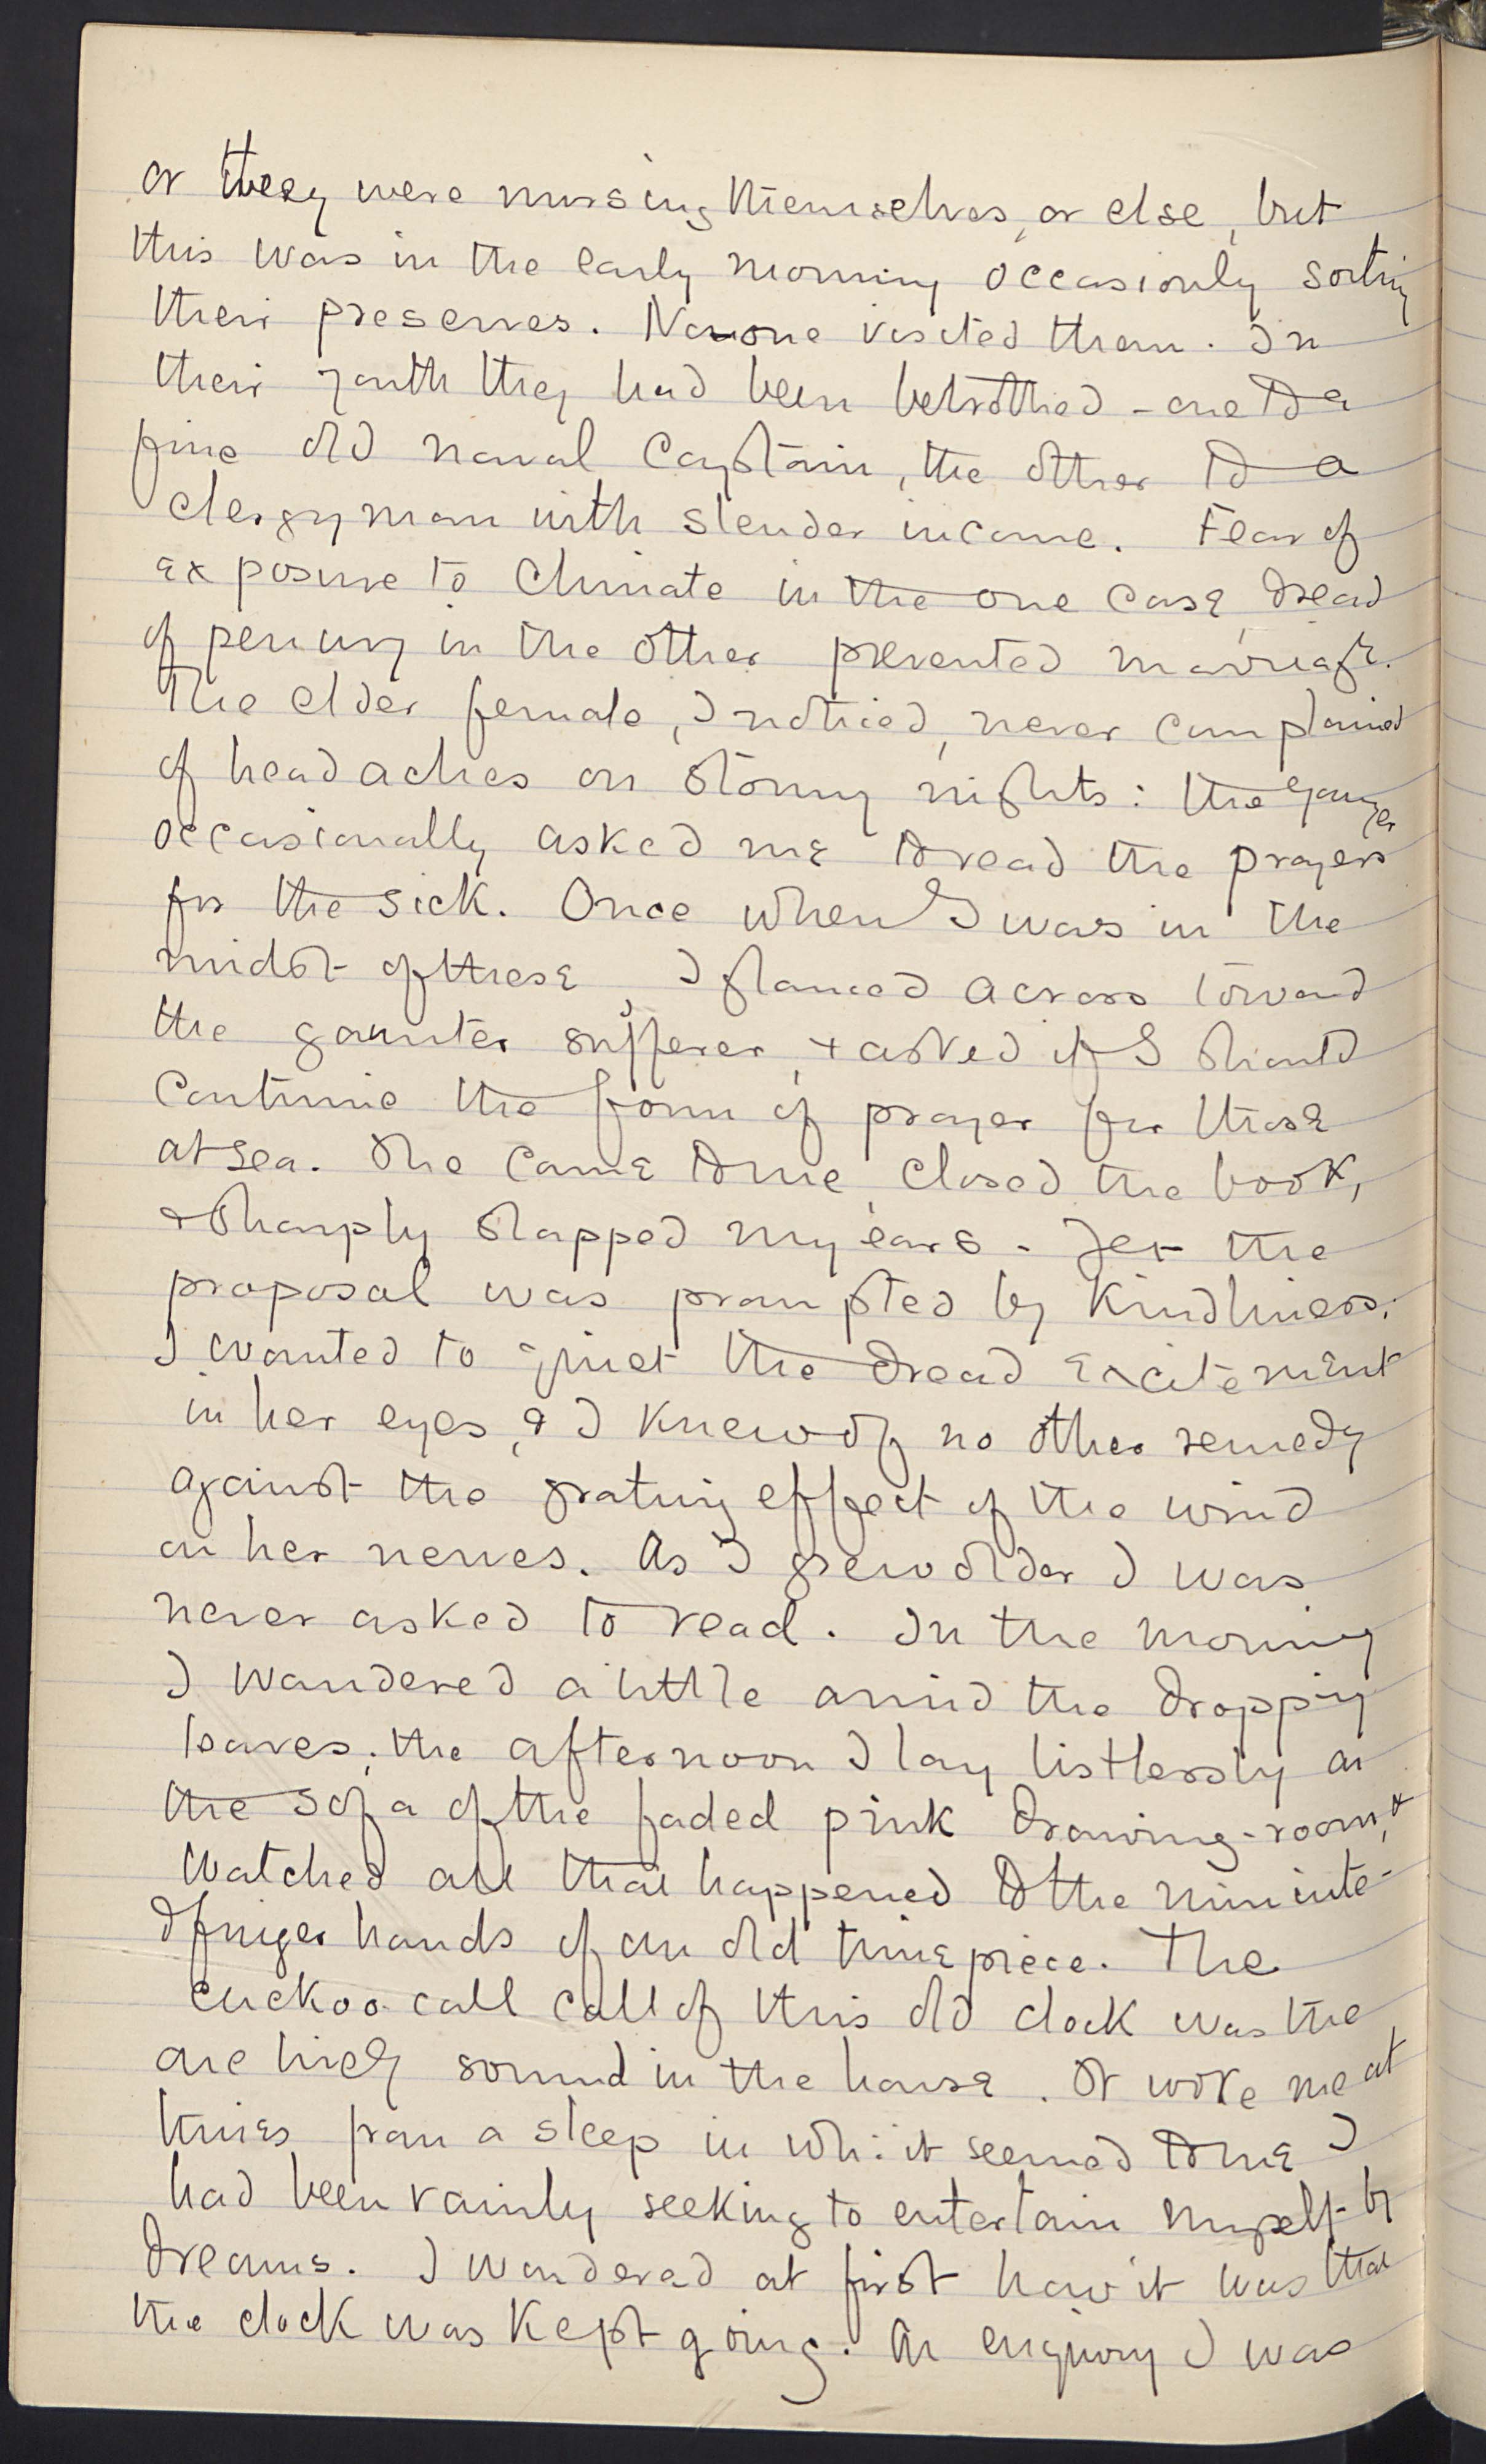 or they were nursing themselves, or else, but
this was in the early morning occasionly sorting
their preserves. No one visited them. In
their youth they had been betrothed - one to a
fine old naval Captain, the other to a
clergyman with slender income. Fear of
exposure to Climate in the one case, dread
of penury in the other prevented marriage.
The elder female, I noticed, never complained
of headaches on stormy nights: the younger
occasionally asked me to read the prayers
for the sick. Once when I was in the
midst of these, I glanced across toward
the gaunter sufferer, & asked if I should
Continue the form of prayer for those
at sea. She came to me, closed the book,
& sharply slapped my ears. Yet the
proposal was prompted by kindliness;
I wanted to quiet the dread excitement
in her eyes, & I knew of no other remedy
against the grating effect of the wind
on her nerves. As I grew older I was
never asked to read. In the morning
I wandered a little amid the dropping
leaves; the afternoon I lay listlessly on
the sofa of the faded pink drawing-room, &
watched all that happened to the minute-
finger hands of an old timepiece. The
cuckoo call call of this old clock was the
one lively sound in the house. It woke me at
times from a sleep in wh: it seemed to me I
had been vainly seeking to entertain myself by
dreams. I wondered at first how it was that
the clock was kept going. On enquiry I was